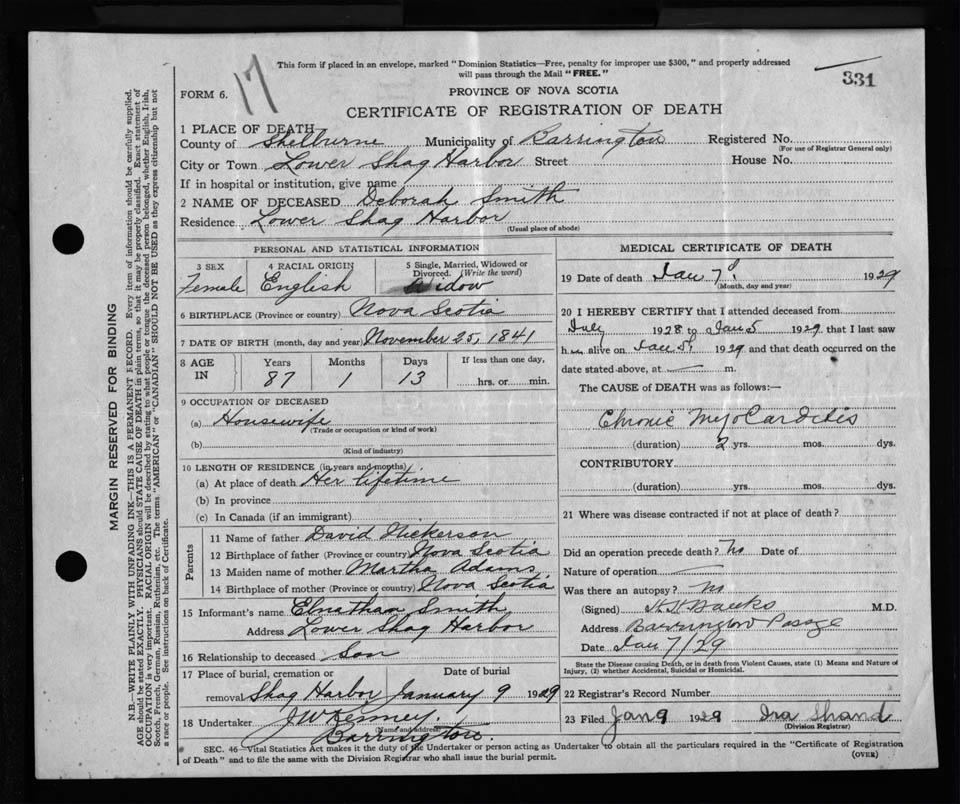 17
This form if placed in an envelope, marked "Dominion Statistics—Free, penalty for improper use $300," and properly addressed
will pass through the Mail "FREE."
331
FORM 6.
PROVINCE OF NOVA SCOTIA
CERTIFICATE OF REGISTRATION OF DEATH
1 PLACE OF DEATH
County of Shelburne Municipality of Barrington Registered No.
(For use of Registrar General only)
City or Town Lower Shag Harbor Street House No.
If in hospital or institution, give name
2 NAME OF DECEASED Deborah Smith
Residence Lower Shag Harbor
(Usual place of abode)
PERSONAL AND STATISTICAL INFORMATION
3 SEX 4 RACIAL ORIGIN 5 Single, Married, Widowed or
Divorced. (Write the word)
Female English Widow
6 BIRTHPLACE (Province or country) Nova Scotia
7 DATE OF BIRTH (month, day and year) November 25, 1841
8 AGE IN Years Months Days If less than one day,
87 1 13 hrs. or min.
9 OCCUPATION OF DECEASED
(a) Housewife
(Trade or occupation or kind of work)
(b)
(Kind of industry)
10 LENGTH OF RESIDENCE (in years and months)
(a) At place of death Her lifetime
(b) In province
(c) In Canada (if an immigrant)
Parents
11 Name of father David Nickerson
12 Birthplace of father (Province or country) Nova Scotia
13 Maiden name of mother Martha Adams
14 Birthplace of mother (Province or country) Nova Scotia
15 Informant's name Elnathan Smith
Address Lower Shag Harbor
16 Relationship to deceased Son
17 Place of burial, cremation or Date of burial
removal Shag Harbor January 9 1929
18 Undertaker J W Kenney.
(Name and address)
Barrington.
MEDICAL CERTIFICATE OF DEATH
19 Date of death Jan 7 1929
(Month, day and year)
20 I HEREBY CERTIFY that I attended deceased from
July 1928 to Jan 5 1929 that I last saw
h alive on Jan 5 1929 and that death occurred on the
date stated above, at — m.
The CAUSE OF DEATH was as follows:—
Chronic Myocarditis
(duration) 2 yrs. mos. dys.
CONTRIBUTORY
(duration) yrs. mos. dys.
21 Where was disease contracted if not at place of death?
Did an operation precede death? No Date of
Nature of operation
Was there an autopsy? no
(Signed) Banks M.D.
Address Barrington Passage
Date Jan 7/29
State the Disease causing Death, or in death from Violent Causes, state (1) Means and Nature of
Injury, (2) whether Accidental, Suicidal or Homicidal.
22 Registrar's Record Number
23 Filed Jan 9 1929 Ira Shand
(Division Registrar)
SEC. 46—Vital Statistics Act makes it the duty of the Undertaker or person acting as Undertaker to obtain all the particulars required in the "Certificate of Registration
of Death" and to file the same with the Division Registrar who shall issue the burial permit.
(OVER)
MARGIN RESERVED FOR BINDING
N.B.—WRITE PLAINLY WITH UNFADING INK—THIS IS A PERMANENT RECORD. Every item of information should be carefully supplied.
AGE should be stated EXACTLY. PHYSICIANS should STATE CAUSE OF DEATH in plain terms, so that it may be properly classified. Exact statement of
OCCUPATION is very important. RACIAL ORIGIN will be described by stating to what people or tongue the deceased person belonged, whether English, Irish,
Scotch, French, German, Russian, Ruthenian, etc. The terms "AMERICAN" or "CANADIAN" SHOULD NOT BE USED as they express citizenship but not
a race or people. See instructions on back of Certificate.